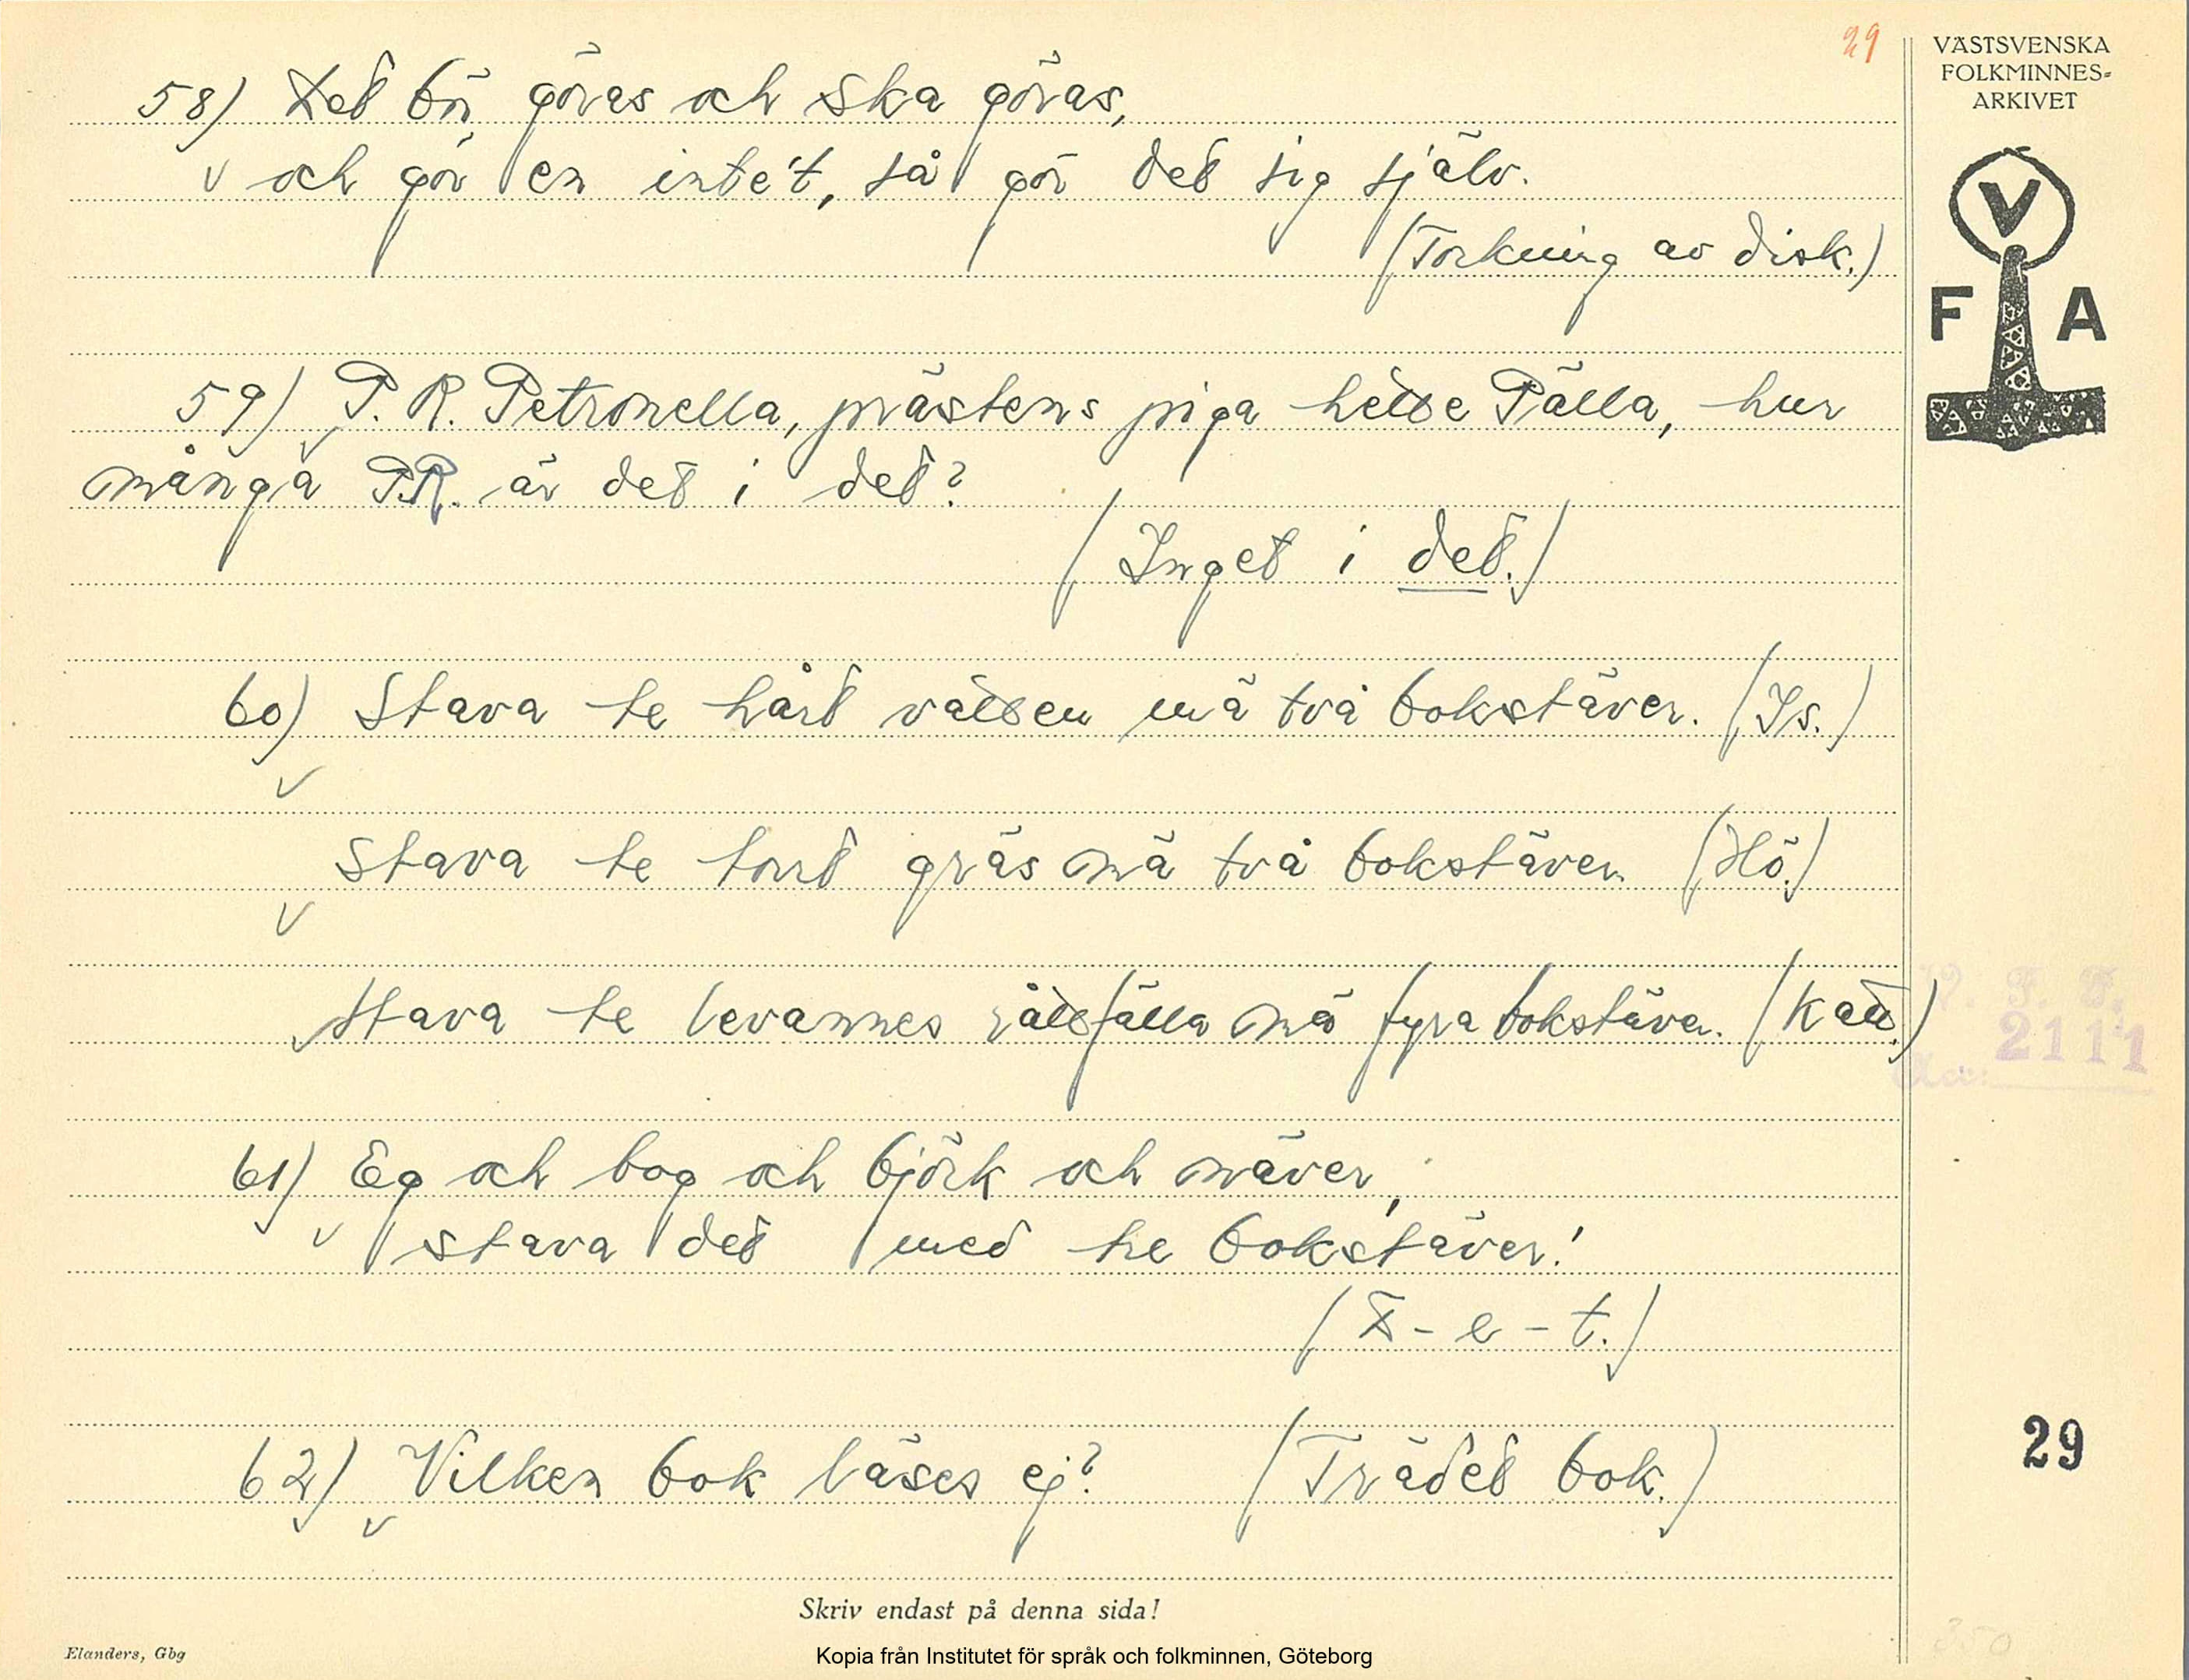 29
VÄSTSVENSKA
FOLKMINNES=
ARKIVET
V
F A
58) Det bör göras och ska göras,
och gör en inte't, så gör det sig själv.
(Torkning av disk.)
59) P. R. Petronella, prästens piga hette Pälla, hur
många P.R. är det i det?
(Inget i det.)
60) Stava te hårt vatten mä två bokstäver. (Is.)
Stava te torrt gräs mä två bokstäver (Hö.)
Stava te levannes råttfälla mä fyra bokstäver. (Katt.)
V. F. F.
2111
61) Eg och bog och björk och näver,
stava det med tre bokstäver!
(D - e - t.)
62) Vilken bok läses ej? (Trädet bok.)
29
Skriv endast på denna sida!
Elanders, Gbg
Kopia från Institutet för språk och folkminnen, Göteborg
350